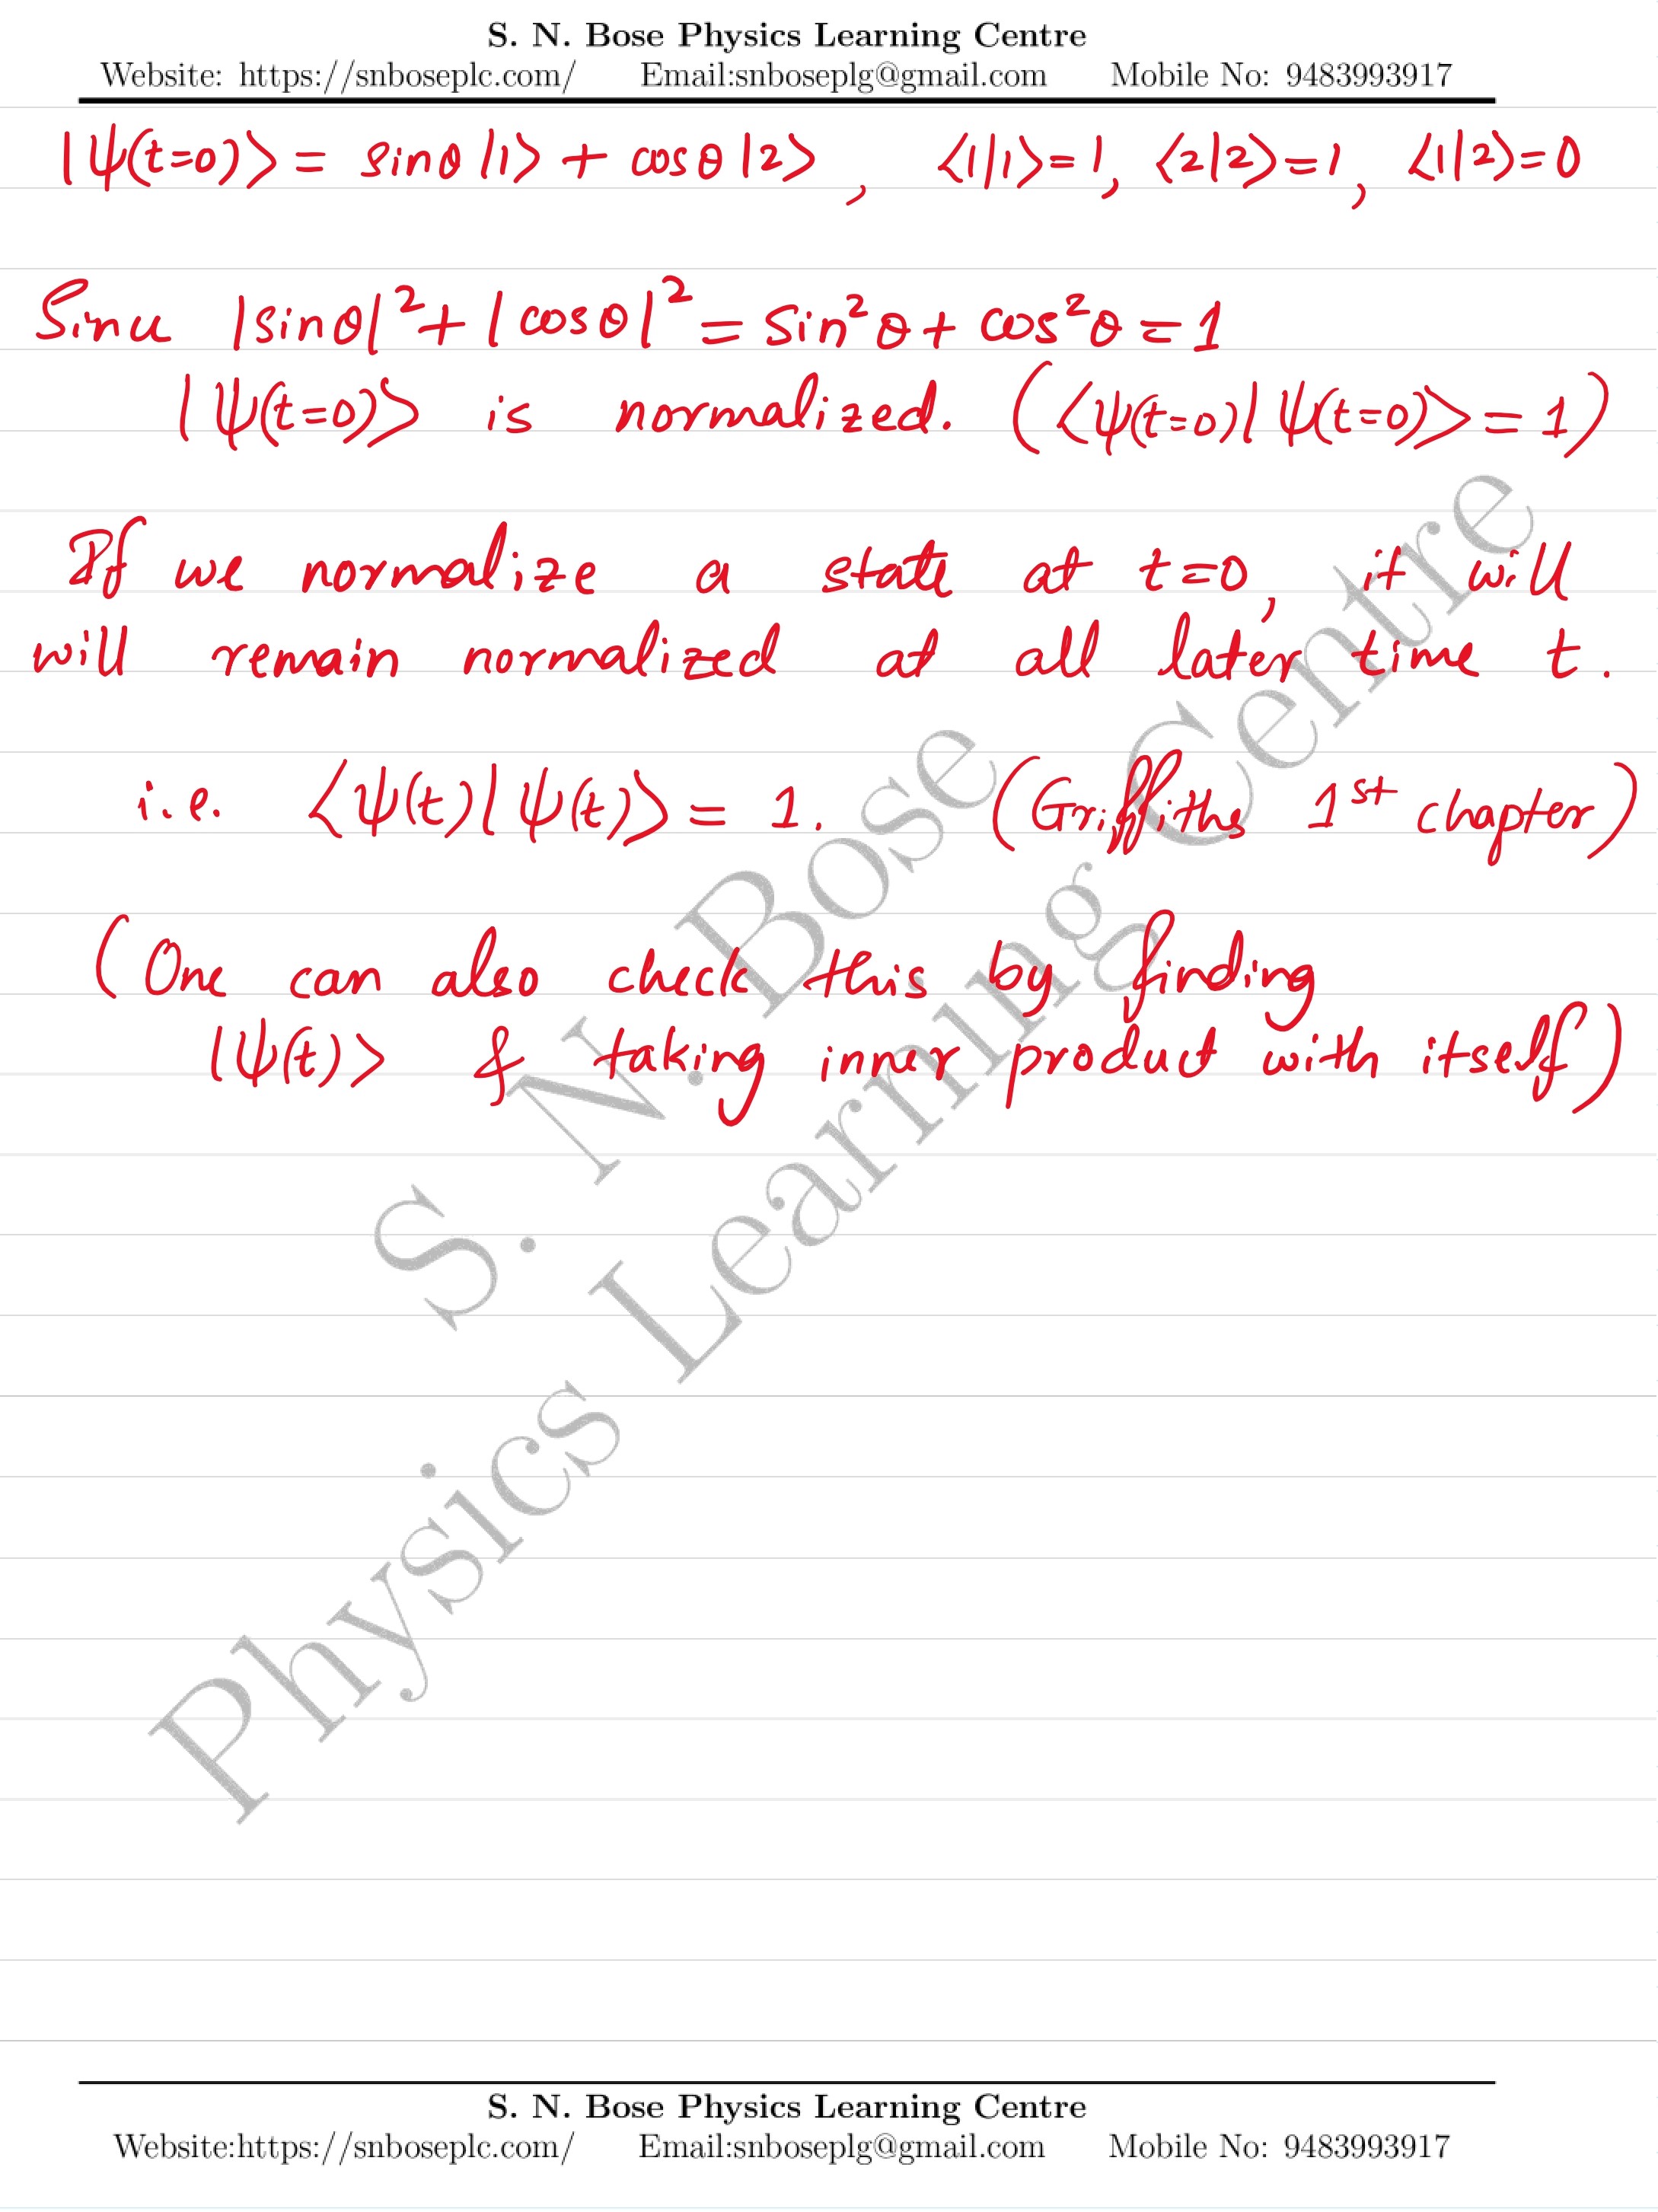 S. N. Bose Physics Learning Centre
Website: https://snboseplc.com/ Email:snboseplg@gmail.com Mobile No: 9483993917
|ψ(t=0)⟩ = sinθ |1⟩ + cosθ |2⟩ , ⟨1|1⟩=1, ⟨2|2⟩=1, ⟨1|2⟩=0
Since |sinθ|² + |cosθ|² = sin²θ + cos²θ = 1
|ψ(t=0)⟩ is normalized. (⟨ψ(t=0)|ψ(t=0)⟩ = 1)
If we normalize a state at t=0, it will
will remain normalized at all later time t.
i.e. ⟨ψ(t)|ψ(t)⟩ = 1. (Griffiths 1st chapter)
(One can also check this by finding
|ψ(t)⟩ & taking inner product with itself)
S. N. Bose
Physics Learning Centre
S. N. Bose Physics Learning Centre
Website:https://snboseplc.com/ Email:snboseplg@gmail.com Mobile No: 9483993917